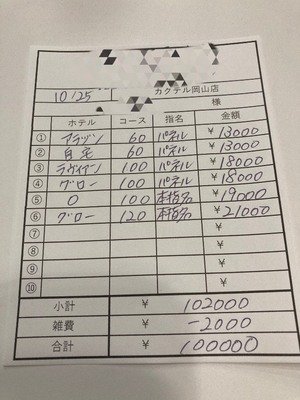 10/25 カクテル岡山店
様
ホテル コース 指名 金額
① アラヴン 60 パネル ¥13000
② 自宅 60 パネル ¥13000
③ ラヴィアン 100 パネル ¥18000
④ グロー 100 パネル ¥18000
⑤ O 100 本指名 ¥19000
⑥ グロー 120 本指名 ¥21000
⑦ ¥
⑧ ¥
⑨ ¥
⑩ ¥
小計 ¥ 102000
雑費 ¥ -2000
合計 ¥ 100000